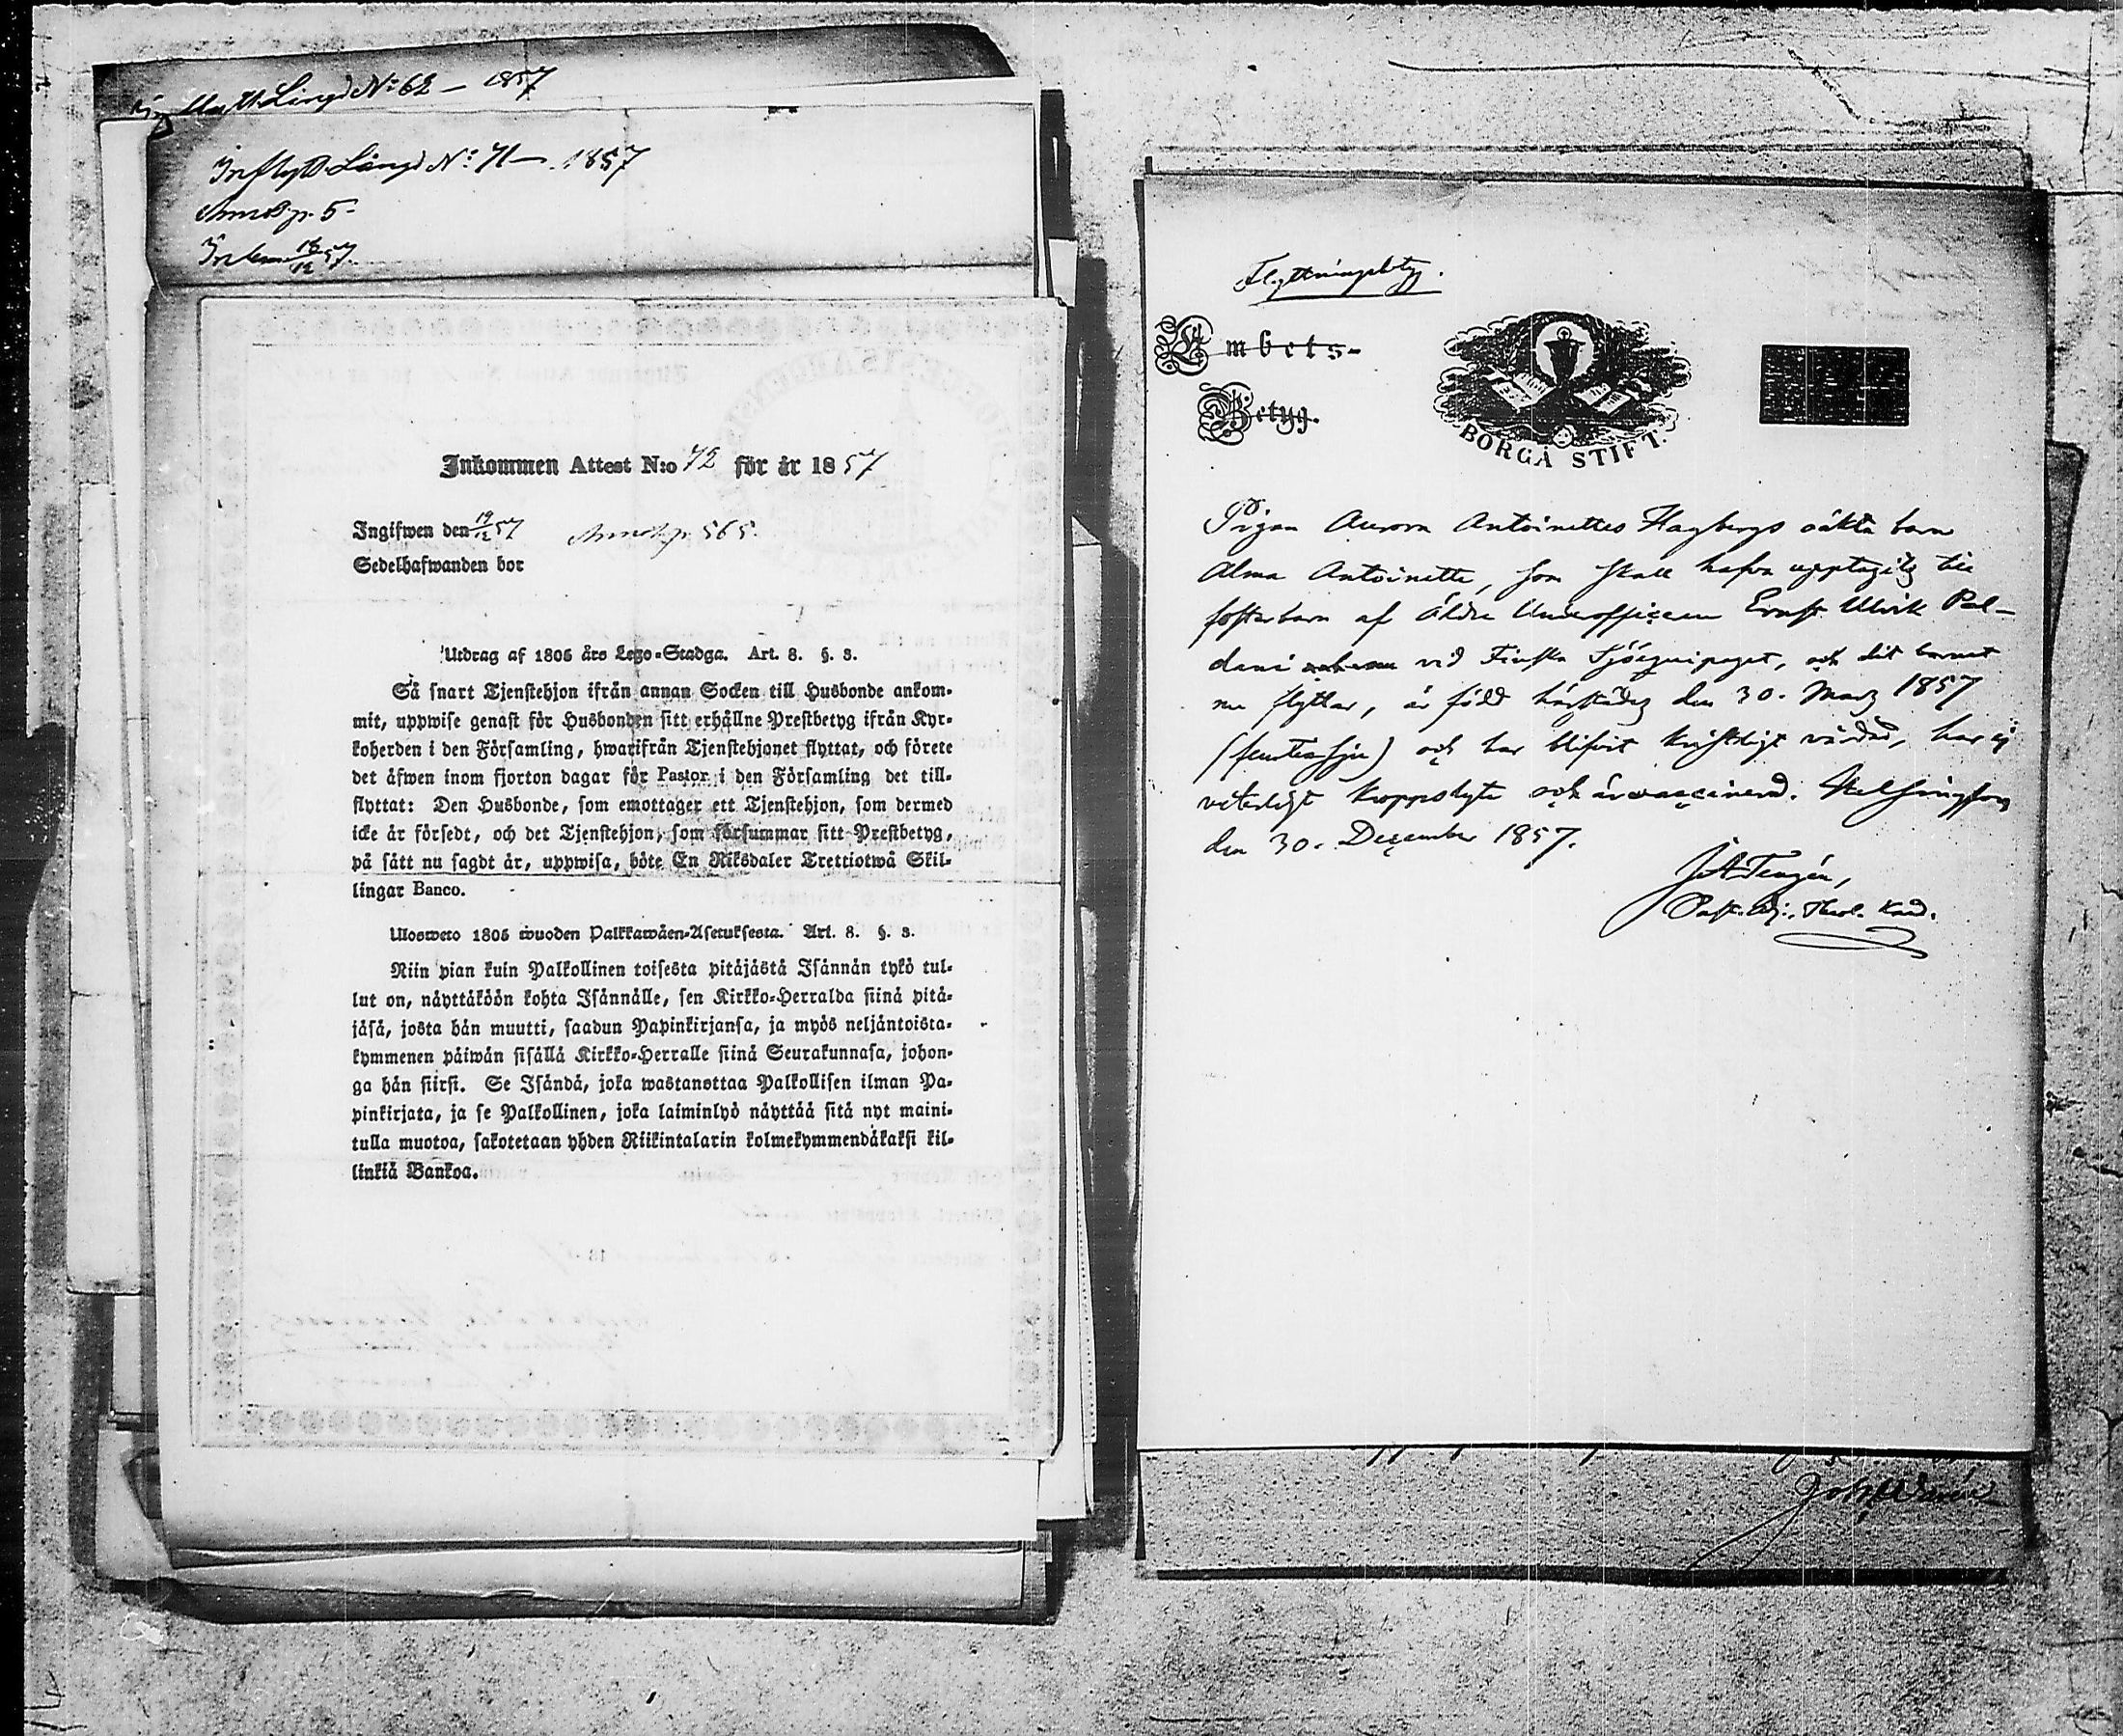 Inflytt. Längd No: 62 – 1857
Inflytt. Längd No: 71 – 1857
Annot. p. 5
Inkom. 18/12 57.
Inkommen Attest N:o 72 för år 1857
Ingifwen den 19/12 57 Annot. p. 565.
Sedelhafwanden bor
Utdrag af 1805 års Lego-Stadga. Art. 8. §. 3.
Så snart Tjenstehjon ifrån annan Socken till Husbonde ankom-
mit, uppwise genast för Husbonden sitt erhållne Prestbetyg ifrån Kyr-
koherden i den Församling, hwarifrån Tjenstehjonet flyttat, och förete
det äfwen inom fjorton dagar för Pastor i den Församling det till-
flyttat: Den Husbonde, som emottager ett Tjenstehjon, som dermed
icke är försedt, och det Tjenstehjon, som försummar sitt Prestbetyg,
på sätt nu sagdt är, uppwisa, böte En Riksdaler Trettiotwå Skil-
lingar Banco.
Ulosweto 1805 wuoden Palkkawäen-Asetuksesta. Art. 8. §. 3.
Niin pian kuin Palkollinen toisesta pitäjästä Isännän tykö tul-
lut on, näyttäköön kohta Isännälle, sen Kirkko-Herralda siinä pitä-
jäsä, josta hän muutti, saadun Papinkirjansa, ja myös neljäntoista-
kymmenen päiwän sisällä Kirkko-Herralle siinä Seurakunnasa, johon-
ga hän siirsi. Se Isändä, joka wastanottaa Palkollisen ilman Pa-
pinkirjata, ja se Palkollinen, joka laiminlyö näyttää sitä nyt maini-
tulla muotoa, sakotetaan yhden Riikintalarin kolmekymmendäkaksi kil-
linkiä Bankoa.
Flyttningsbetyg.
Embets-
Betyg.
BORGÅ STIFT.
Pigan Aurora Antoinettes Hagbergs oäkta barn
Alma Antoinette, som skall hafva upptagits till
fosterbarn af äldre Underofficeren Ernst Ulrik Pal-
dani vid Finska Sjöequipaget, och dit barnet
nu flyttar, är född härstädes den 30. Mars 1857
(femtiosju) och har blifvit kristligt vårdad, har ej
veterligt kroppslyte och är vaccinerad. Helsingfors
den 30. December 1857.
Past. Adj., Theol. Kand.